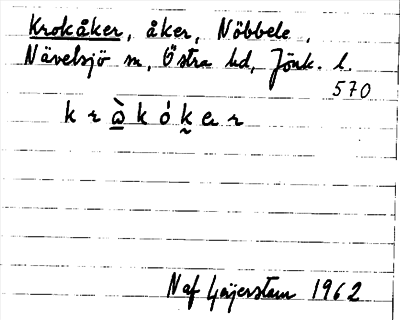 Krokåker, åker, Nöbbele,
Nävelsjö sn, Östra hd, Jönk. l.
570
k r ὼ̲ k ó k̰ e r
Naf Geijerstam 1962